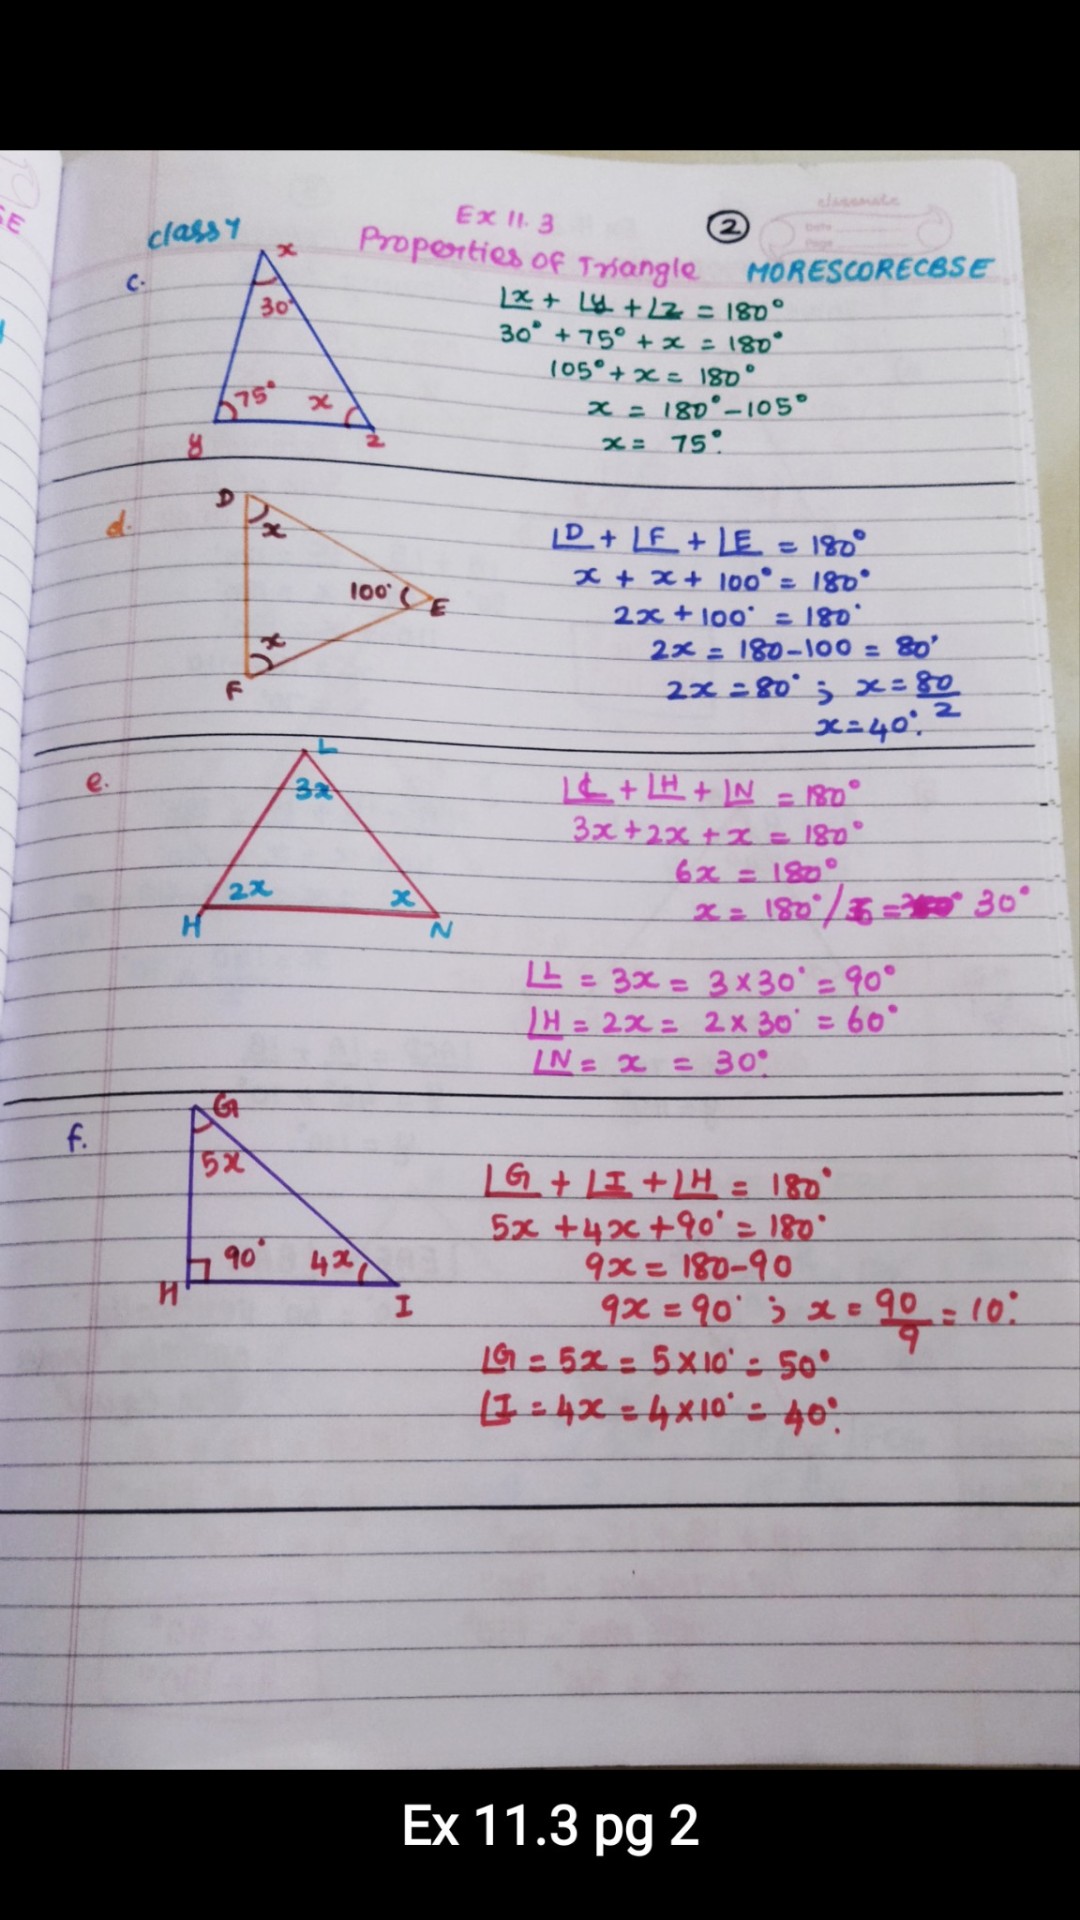 Class 7
Ex 11.3
2
classmate
Date
Page
Properties of Triangle
MORESCORECBSE
c.
x
30°
75°
x
y
z
∠x + ∠y + ∠z = 180°
30° + 75° + x = 180°
105° + x = 180°
x = 180° - 105°
x = 75°.
d.
D
x
100°
E
x
F
∠D + ∠F + ∠E = 180°
x + x + 100° = 180°
2x + 100° = 180°
2x = 180 - 100 = 80°
2x = 80° ; x = 80/2
x = 40°.
e.
L
3x
2x
x
H
N
∠L + ∠H + ∠N = 180°
3x + 2x + x = 180°
6x = 180°
x = 180°/6 = 30°
∠L = 3x = 3 × 30° = 90°
∠H = 2x = 2 × 30° = 60°
∠N = x = 30°.
f.
G
5x
90°
4x
H
I
∠G + ∠I + ∠H = 180°
5x + 4x + 90° = 180°
9x = 180 - 90
9x = 90° ; x = 90/9 = 10°.
∠G = 5x = 5 × 10° = 50°
∠I = 4x = 4 × 10° = 40°.
Ex 11.3 pg 2